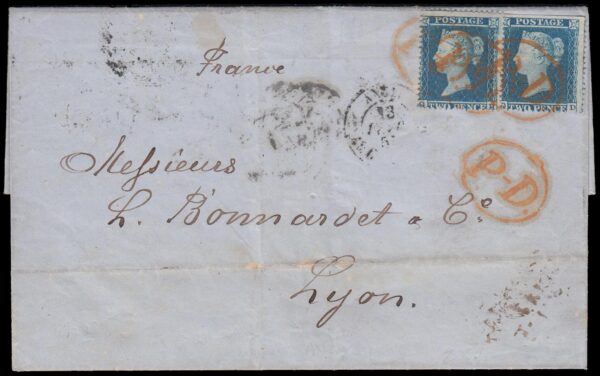 POSTAGE POSTAGE
TWO PENCE TWO PENCE
France
Messieurs
L. Bonnardet & Co.
Lyon.
P-D.